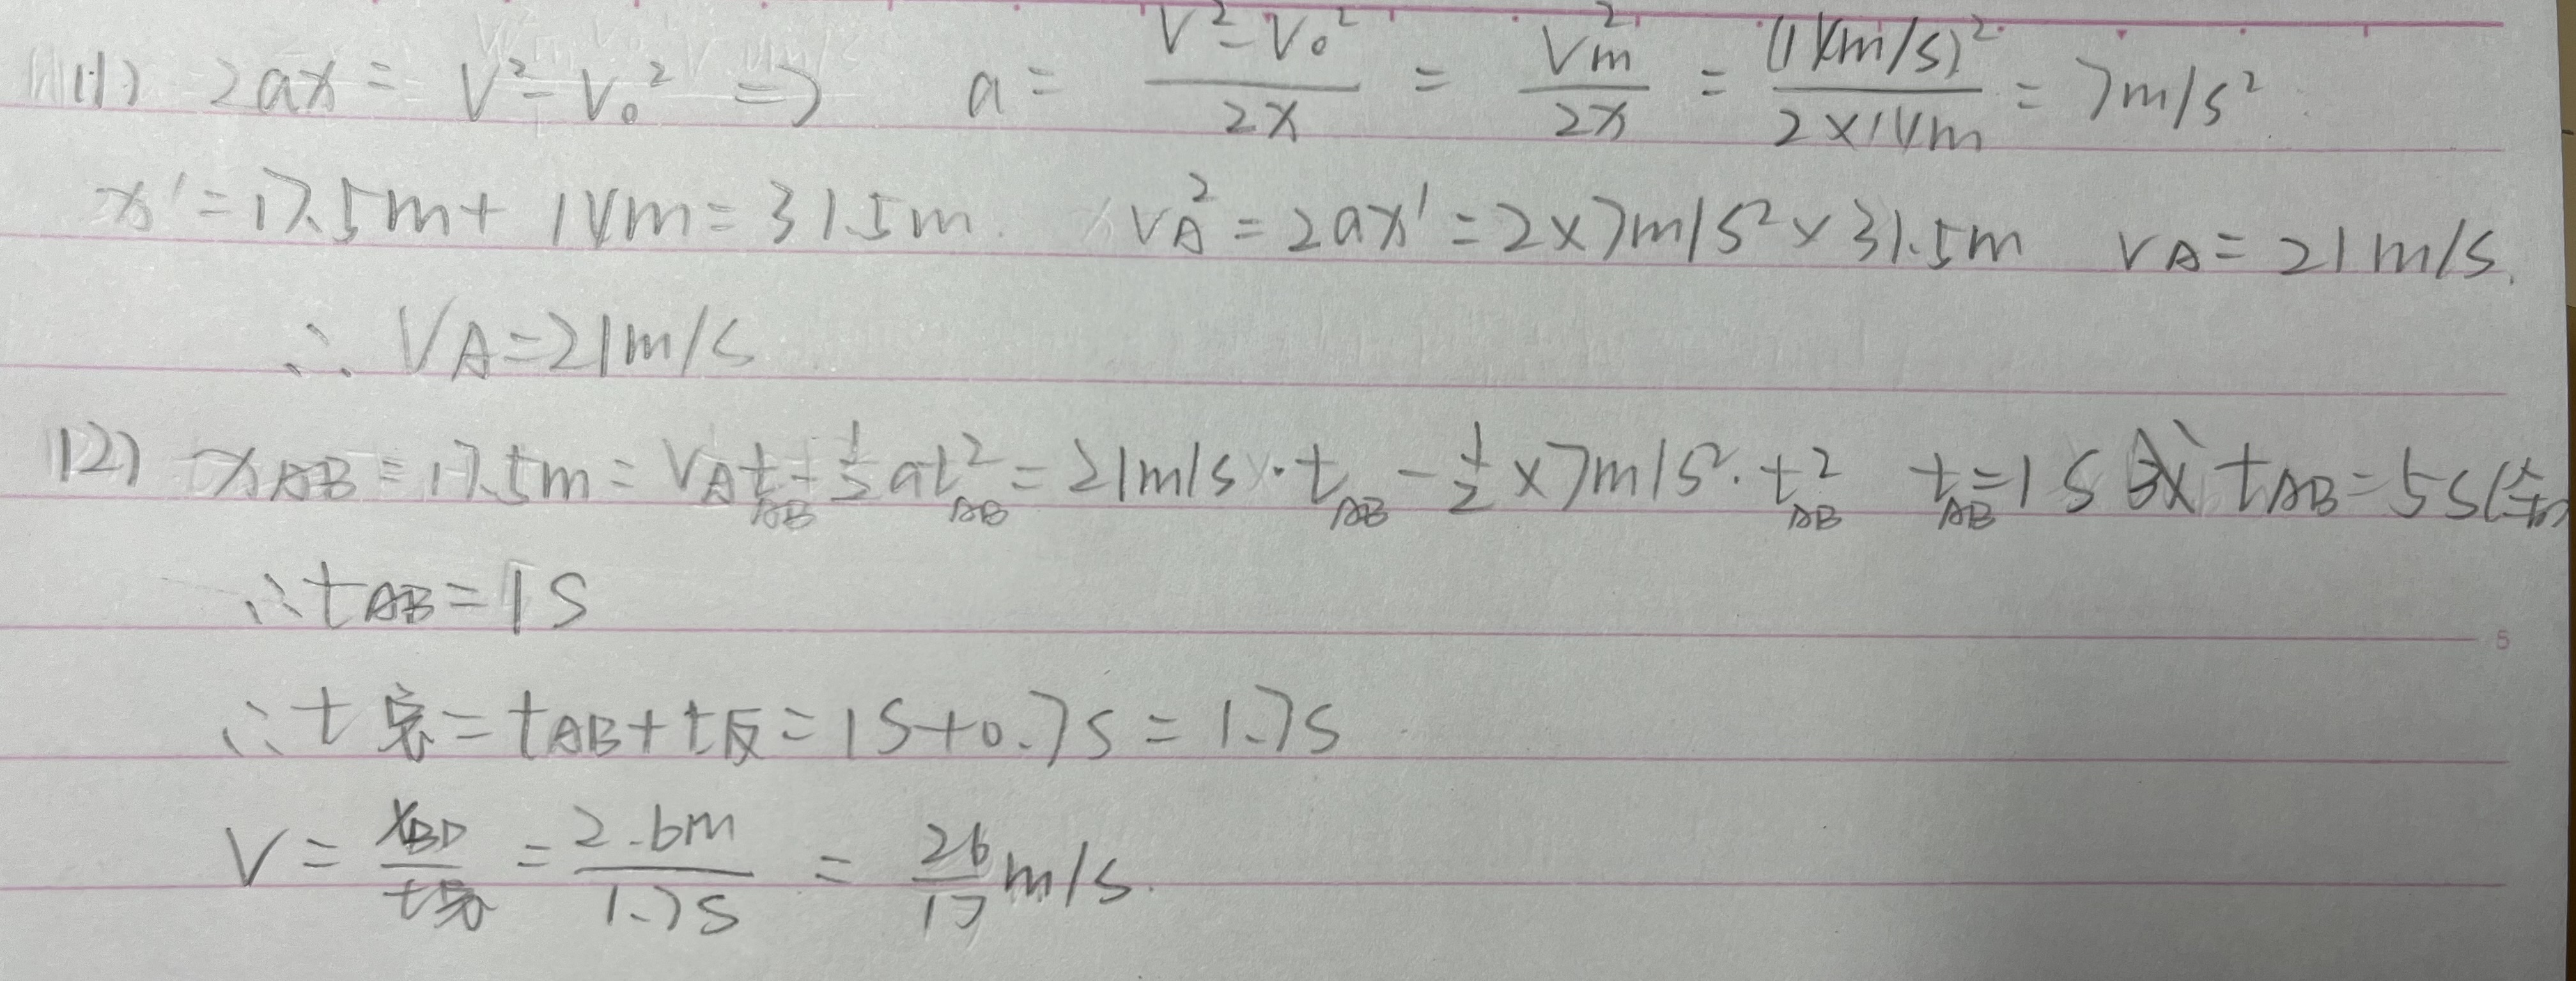 (1) 2ax = V² - V₀² => a = (V² - V₀²)/(2x) = Vm²/(2x) = (14m/s)²/(2×14m) = 7m/s²
x' = 17.5m + 14m = 31.5m. VA² = 2ax' = 2×7m/s²×31.5m VA = 21m/s.
∴ VA = 21m/s
(2) xAB = 17.5m = VA tAB - ½ a tAB² = 21m/s · tAB - ½×7m/s² · tAB² tAB = 1s 或 tAB = 5s(
∴ tAB = 1s
∴ t = tAB + t反 = 1s + 0.7s = 1.7s
V = xBD/t = 2.6m/1.7s = 26/17 m/s.
5